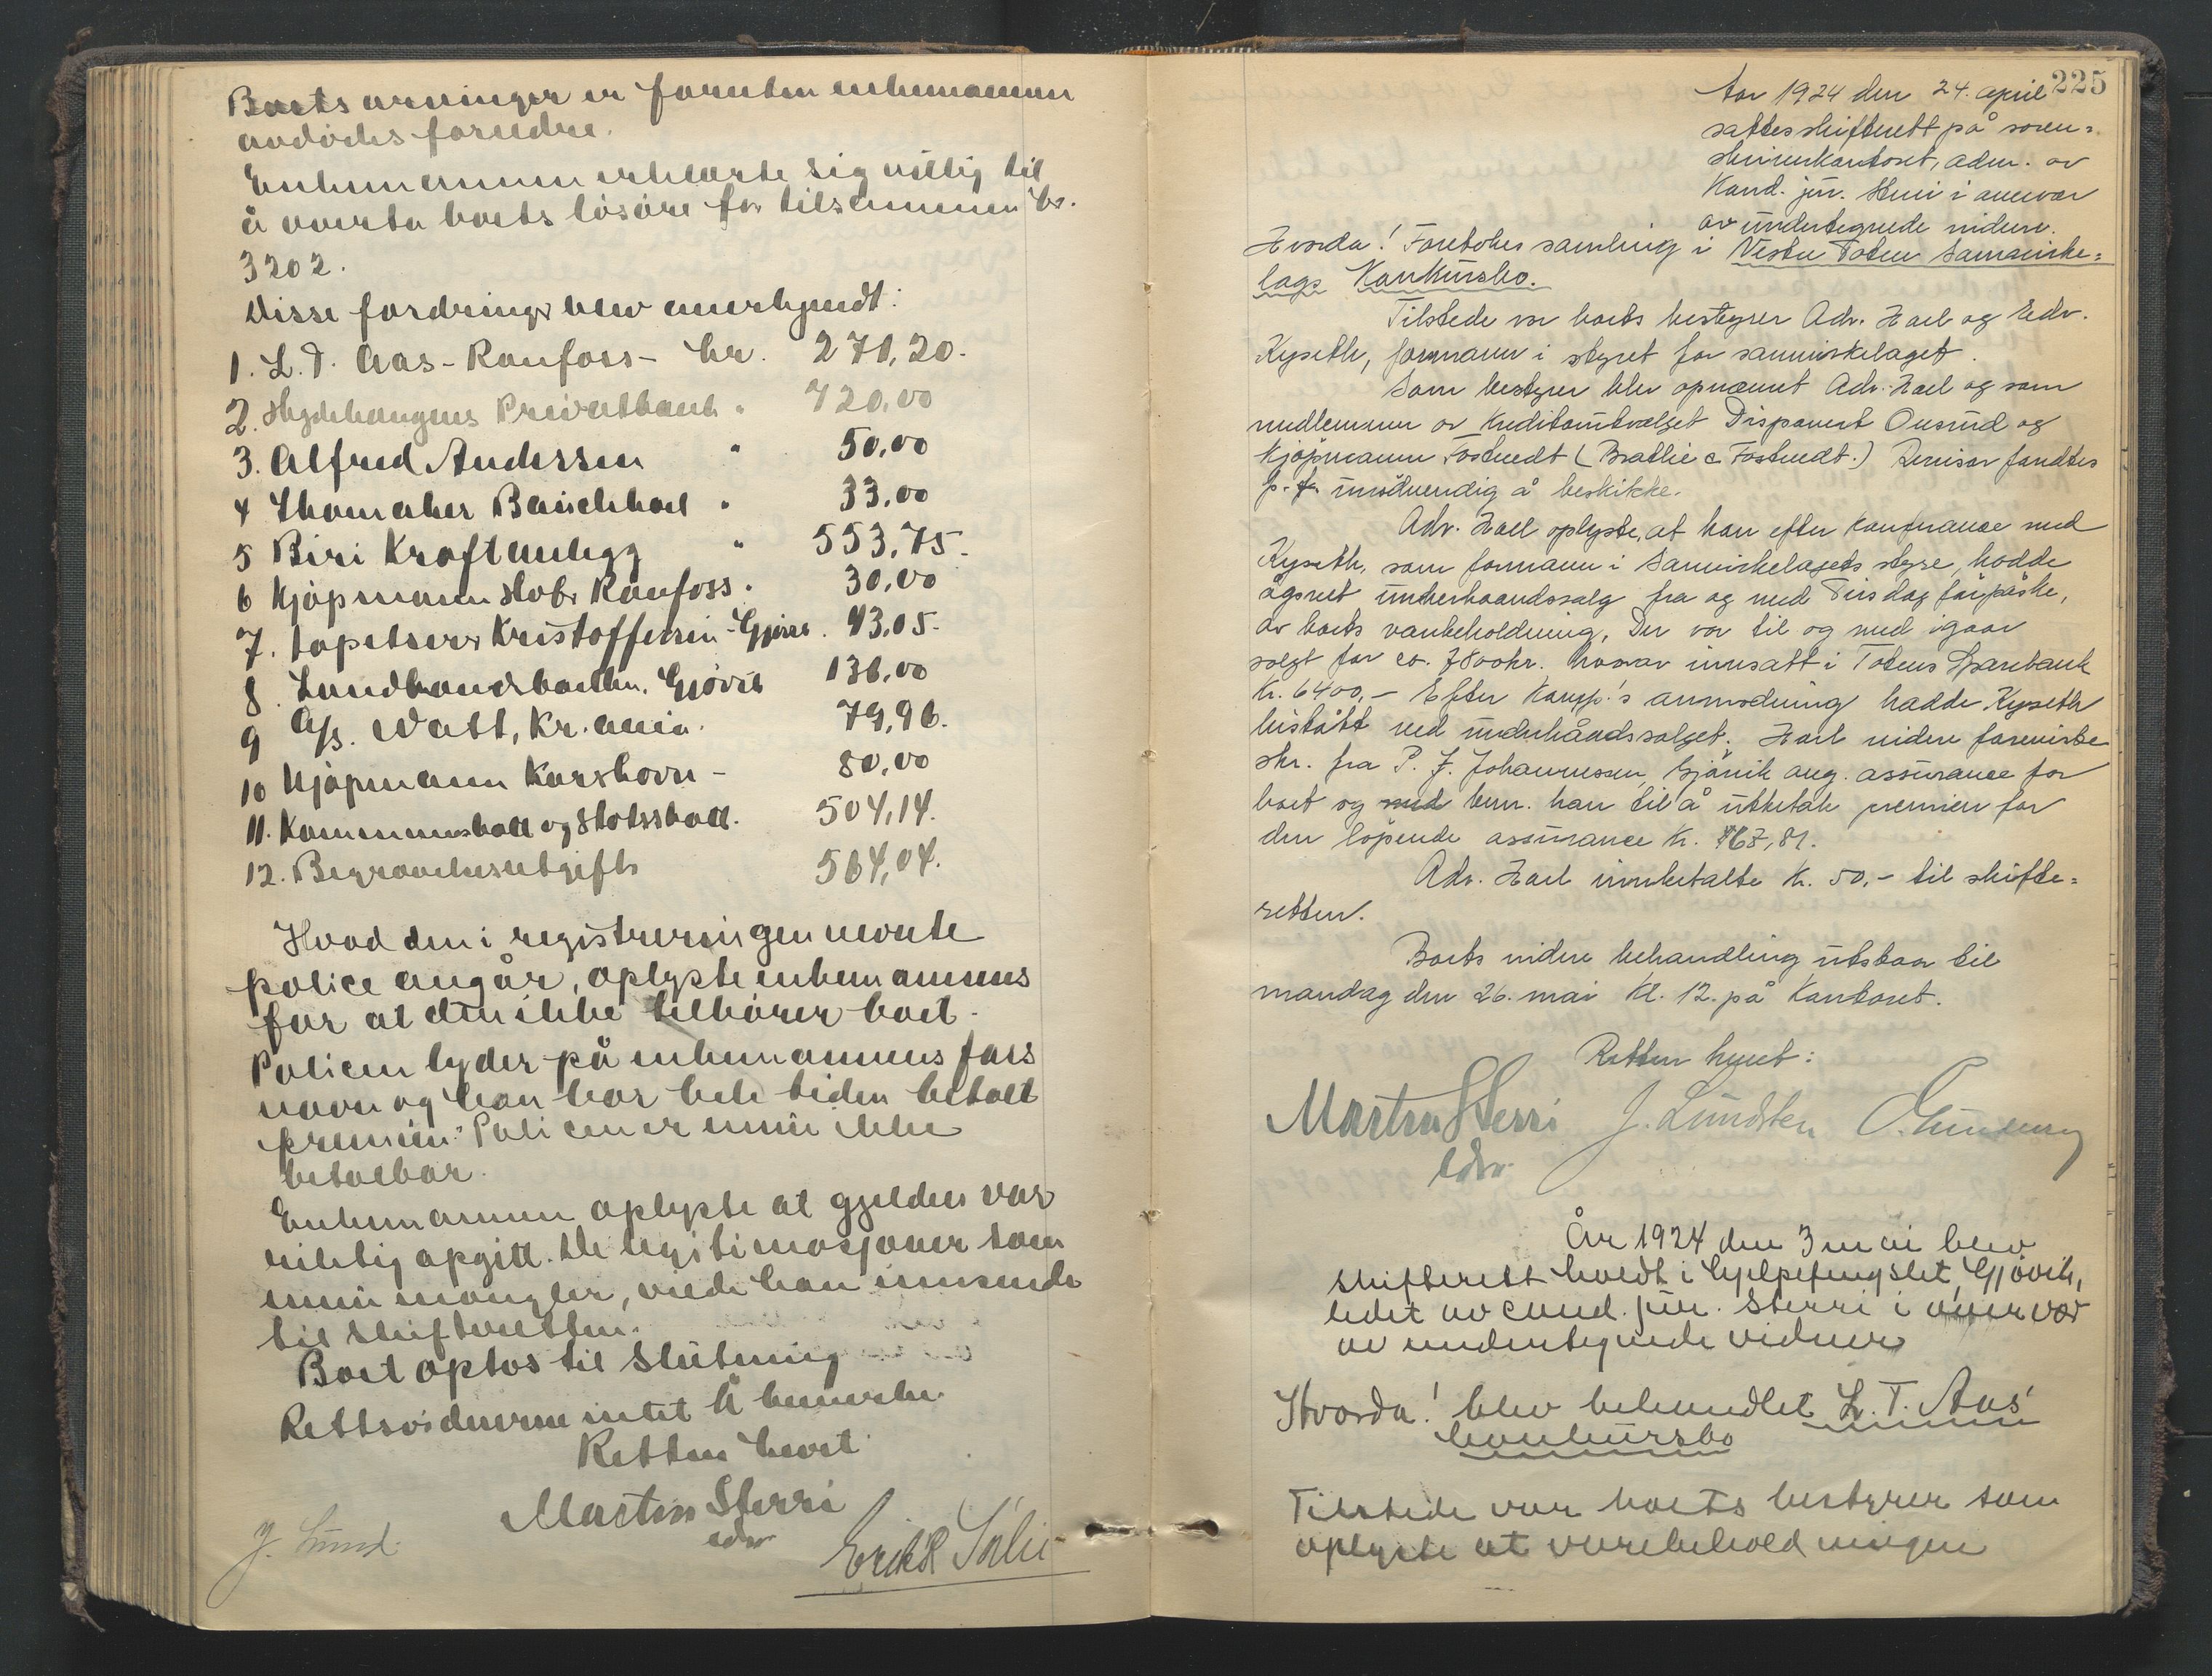 Boets arvinger er foruten enkemannen
avdødes foreldre.
Enkemannen erklærte sig villig til
å overta boets løsøre for tilsammen kr.
3202.
Disse fordringer blev anerkjendt:
1. L. T. Aas - Raufoss - kr. 271,20.
2. Privatbank " 720,00
3. Alfred Anderssen " 50,00
4 Skomaker " 33,00
5 Biri Kraftanlegg " 553,75.
6 Kjøpmann Raufoss. 30,00
7. Tapetserer Kristoffersen - Gjøvik. 93,05.
8. Gjøvik 136,00
9 A/s. Watt, Kr.ania. 79,96.
10 Kjøpmann - 80,00
11. Kommuneskatt og Statsskatt. 504,14.
12. Begravelsesutgifter 564,04.
Hvad den i registreringen nevnte
police angår, oplyste enkemannens
far at den ikke tilhører boet.
Policen lyder på enkemannens fars
navn og han har hele tiden betalt
premien. Policen er ennu ikke
betalbar.
Enkemannen oplyste at gjelden var
riktig opgitt. De legitimasjoner som
ennu mangler, vilde han innsende
til skifteretten.
Boet optas til slutning
Rettsvidnerne intet å bemerke.
Retten hevet.
Martin Sterri
edsv.
J. Lund. Erik R Sølie
225
Aar 1924 den 24. april
sattes skifterett på soren=
skriverkontoret, adm. av
Kand. jur. Sterri i nærvær
av undertegnede vidner.
Hvorda! Foretokes samling i Vestre Toten Samvirke=
lags Konkursbo.
Tilstede var boets bestyrer Adv. Hoel og Edv.
Kyseth, formann i styret for samvirkelaget.
Som bestyrer blev opnævnt Adv. Hoel og som
medlemmer av Kreditorutvalget Disponent Ousrud og
Kjøpmann Fostvedt (Brathie & Fostvedt.) Revisor fandtes
p. t. unødvendig å beskikke.
Adv. Hoel oplyste, at han efter konferanse med
Kyseth, som formann i Samvirkelagets styre, hadde
underhaandssalg fra og med Tirsdag før påske,
av boets varebeholdning. Der var til og med igaar
solgt for ca. 7800 kr. hvorav innsatt i Totens Sparebank
Kr. 6400,- Efter Komp.'s anmodning hadde Kyseth
bistått ved underhåndssalget. Hoel videre foreviste
skr. fra P. J. Johannessen, Gjøvik ang. assurance for
boet og bem. han til å utbetale premien for
den løpende assurance Kr. 467,81.
Adv. Hoel innbetalte Kr. 50,- til skifte=
retten.
Boets videre behandling utstaar til
mandag den 26. mai Kl. 12. på Kontoret.
Retten hevet:
Martin Sterri J. Lundsten
edsv.
År 1924 den 3 mai blev
skifterett holdt i hjelpefengslet, Gjøvik,
ledet av cand. jur. Sterri i nærvær
av undertegnede vidner
Hvorda! blev behandlet L. T. Aas'
konkursbo
Tilstede var boets bestyrer som
oplyste at varebeholdningen